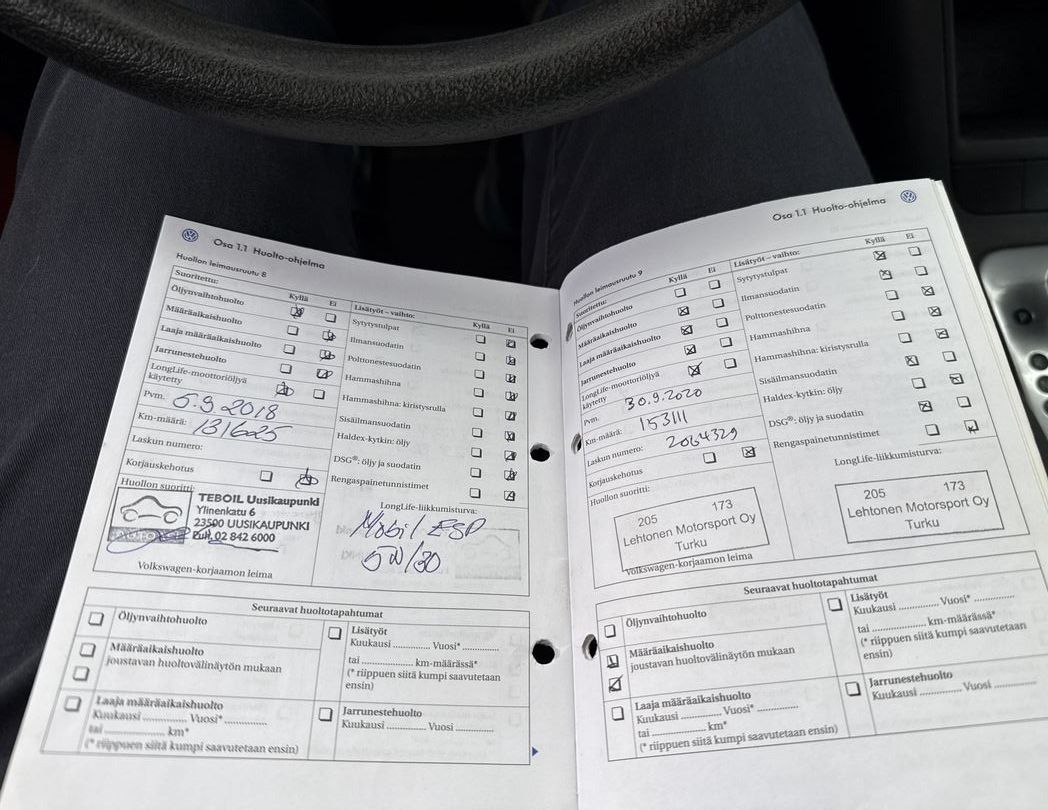 Osa 1.1 Huolto-ohjelma
Huollon leimausruutu 8
Suoritettu: Kyllä Ei
Öljynvaihtohuolto
Määräaikaishuolto
Laaja määräaikaishuolto
Jarrunestehuolto
LongLife-moottoriöljyä
käytetty
Pvm. 6.9 2018
Km-määrä: 131625
Laskun numero:
Korjauskehotus
Huollon suoritti:
TEBOIL Uusikaupunki
Ylinenkatu 6
23500 UUSIKAUPUNKI
Puh. 02 842 6000
Volkswagen-korjaamon leima
Lisätyöt – vaihto: Kyllä Ei
Sytytystulpat
Ilmansuodatin
Polttonestesuodatin
Hammashihna
Hammashihna: kiristysrulla
Sisäilmansuodatin
Haldex-kytkin: öljy
DSG®: öljy ja suodatin
Rengaspainetunnistimet
LongLife-liikkumisturva:
Mobil ESP
5W/30
Seuraavat huoltotapahtumat
Öljynvaihtohuolto
Määräaikaishuolto
joustavan huoltovälinäytön mukaan
Laaja määräaikaishuolto
Kuukausi ............. Vuosi* .............
tai ............. km*
(* riippuen siitä kumpi saavutetaan ensin)
Lisätyöt
Kuukausi ............. Vuosi* .............
tai ............. km-määrässä*
(* riippuen siitä kumpi saavutetaan
ensin)
Jarrunestehuolto
Kuukausi ............. Vuosi .............
Osa 1.1 Huolto-ohjelma
Huollon leimausruutu 9
Suoritettu: Kyllä Ei
Öljynvaihtohuolto
Määräaikaishuolto
Laaja määräaikaishuolto
Jarrunestehuolto
LongLife-moottoriöljyä
käytetty
Pvm. 30.9.2020
Km-määrä: 153111
Laskun numero: 2064329
Korjauskehotus
Huollon suoritti:
205 173
Lehtonen Motorsport Oy
Turku
Volkswagen-korjaamon leima
Lisätyöt – vaihto: Kyllä Ei
Sytytystulpat
Ilmansuodatin
Polttonestesuodatin
Hammashihna
Hammashihna: kiristysrulla
Sisäilmansuodatin
Haldex-kytkin: öljy
DSG®: öljy ja suodatin
Rengaspainetunnistimet
LongLife-liikkumisturva:
205 173
Lehtonen Motorsport Oy
Turku
Seuraavat huoltotapahtumat
Öljynvaihtohuolto
Määräaikaishuolto
joustavan huoltovälinäytön mukaan
Laaja määräaikaishuolto
Kuukausi ............. Vuosi* .............
tai ............. km*
(* riippuen siitä kumpi saavutetaan ensin)
Lisätyöt
Kuukausi ............. Vuosi* .............
tai ............. km-määrässä*
(* riippuen siitä kumpi saavutetaan
ensin)
Jarrunestehuolto
Kuukausi ............. Vuosi .............